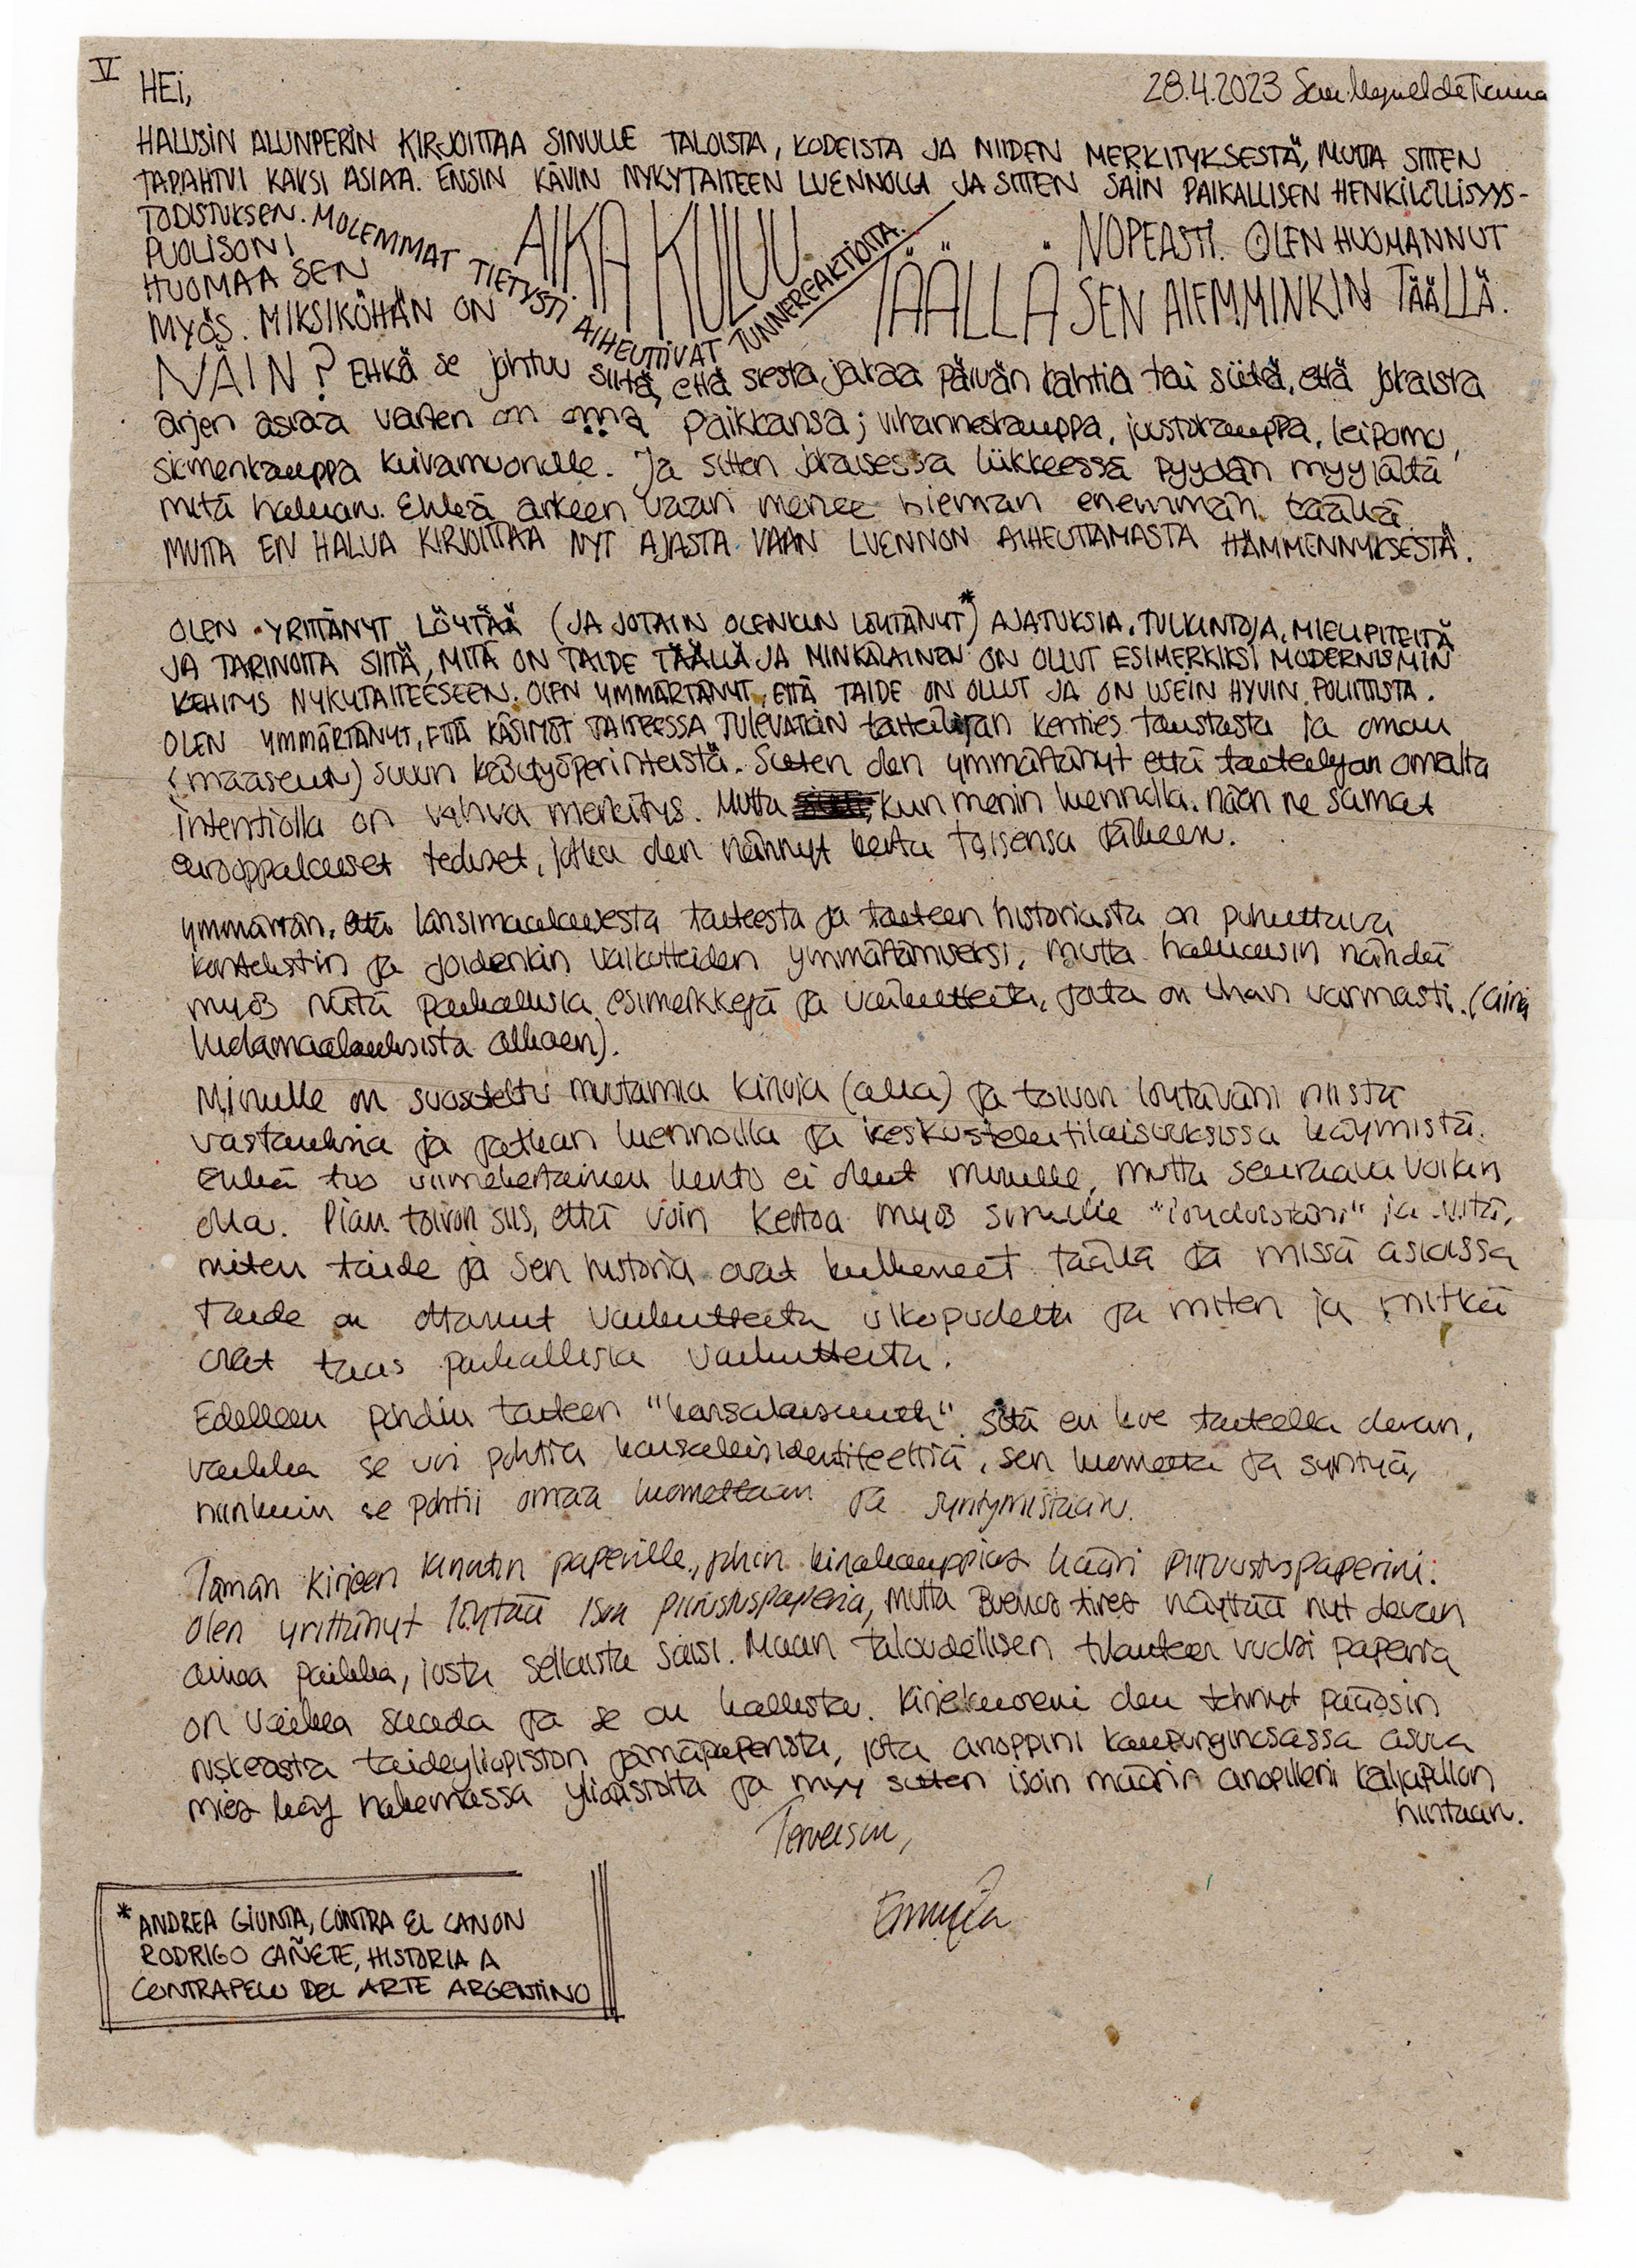 V
HEi,
28.4.2023 San Miguel de
HALUSIN ALUNPERIN KIRJOITTAA SINULLE TALOISTA, KODEISTA JA NIIDEN MERKITYKSESTÄ, MUTTA SITTEN
TAPAHTUI KAKSI ASIAA. ENSIN KÄVIN NYKYTAITEEN LUENNOLLA JA SITTEN SAIN PAIKALLISEN HENKILÖLLISYYS-
TODISTUKSEN. MOLEMMAT TIETYSTI AIHEUTTIVAT TUNNEREAKTIOITA.
AIKA KULUU TÄÄLLÄ NOPEASTI. OLEN HUOMANNUT
SEN AIEMMINKIN TÄÄLLÄ.
PUOLISONI
HUOMAA SEN
MYÖS. MIKSIKÖHÄN ON
NÄIN? EHKÄ se johtuu siitä, että siesta jakaa päivän kahtia tai siitä, että jokaista
arjen asiaa varten on oma paikkansa; vihanneskauppa, juustokauppa, leipomo,
siemenkauppa kuivamuonille. Ja sitten jokaisessa liikkeessä pyydän myyjältä
mitä haluan. Ehkä arkeen vaan menee hieman enemmän täällä.
MUTTA EN HALUA KIRJOITTAA NYT AJASTA VAAN LUENNON AIHEUTTAMASTA HÄMMENNYKSESTÄ.
OLEN YRITTÄNYT LÖYTÄÄ (JA JOTAIN OLENKIN LÖYTÄNYT*) AJATUKSIA, TULKINTOJA, MIELIPITEITÄ
JA TARINOITA SIITÄ, MITÄ ON TAIDE TÄÄLLÄ JA MINKÄLAINEN ON OLLUT ESIMERKIKSI MODERNISMIN
KEHITYS NYKYTAITEESEEN. OLEN YMMÄRTÄNYT, ETTÄ TAIDE ON OLLUT JA ON USEIN HYVIN POLIITTISTA.
OLEN YMMÄRTÄNYT, ETTÄ KÄSITYÖT TAITEESSA TULEVATKIN taiteilijan kenties taustasta ja oman
(maaseutu) suvun käsityöperinteistä. Siten olen ymmärtänyt että taiteilijan omalta
intentiolla on vahva merkitys. Mutta kun menin luennolla. näen ne samat
eurooppalaiset teokset, jotka olen nähnyt kerta toisensa jälkeen.
ymmärrän, että länsimaalaisesta taiteesta ja taiteen historiasta on puhuttava
kontekstin ja joidenkin vaikutteiden ymmärtämiseksi, mutta haluaisin nähdä
myös niitä paikallisia esimerkkejä ja vaikutteita, joita on ihan varmasti. (aina
luolamaalauksista alkaen).
Minulle on suositeltu muutamia kirjoja (alla) ja toivon löytäväni niistä
vastauksia ja jatkan luennoilla ja keskustelutilaisuuksissa käymistä.
Ehkä tuo viimekertainen luento ei ollut minulle, mutta seuraava voikin
olla. Pian toivon siis, että voin kertoa myös sinulle "löydöistäni" ja siitä,
miten taide ja sen historia ovat kulkeneet täällä ja missä asioissa
taide on ottanut vaikutteita ulkopuolelta ja miten ja mitkä
ovat taas paikallisia vaikutteita.
Edelleen pohdin taiteen "kansalaisuutta". Sitä en koe taiteella olevan,
vaikka se voi pohtia kansalaisidentiteettiä, sen luonnetta ja syntyä,
niinkuin se pohtii omaa luonnettaan ja syntymistään.
Tämän kirjeen kirjoitin paperille, johon kirjakauppias kääri piirustuspaperini.
Olen yrittänyt löytää isoa piirustuspaperia, mutta Buenos Aires näyttää nyt olevan
ainoa paikka, josta sellaista saisi. Maan taloudellisen tilanteen vuoksi paperia
on vaikea saada ja se on kallista. Kirjekuoreni olen tehnyt pääosin
ruskeasta taideyliopiston jämäpaperista, jota anoppini kaupunginosassa asuva
mies käy hakemassa yliopistolta ja myy sitten isoin määrin anopilleni kaljapullon
hintaan.
Terveisin,
* ANDREA GIUNTA, CONTRA EL CANON
RODRIGO CAÑETE, HISTORIA A
CONTRAPELO DEL ARTE ARGENTINO